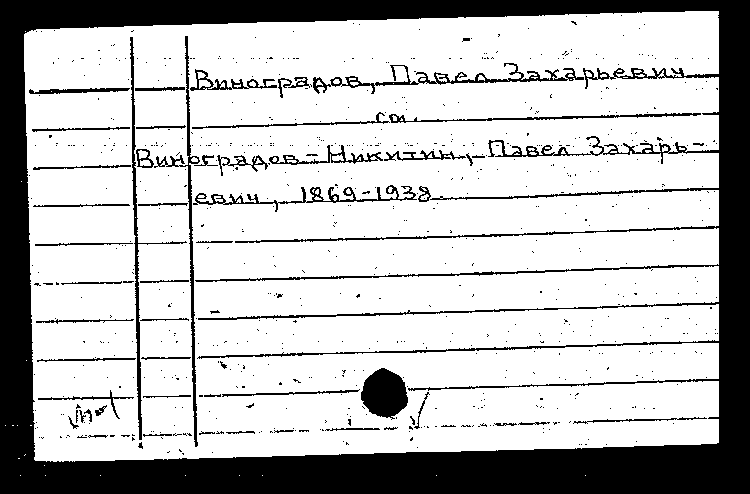 Виноградов, Павел Захарьевич
см.
Виноградов-Никитин, Павел Захарь-
евич, 1869-1938.